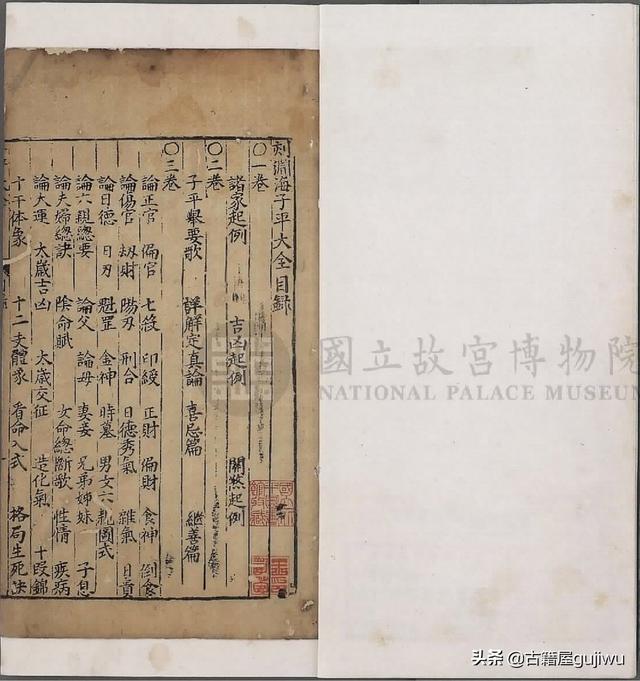 刻淵海子平大全目録
〇一卷
諸家起例 吉凶起例 關煞起例
〇二卷
子平舉要歌 詳解定真論 喜忌篇 继善篇
〇三卷
論正官 偏官 七殺 印綬 正財 偏財 食神 倒食
論傷官 刼財 陽刃 刑合 日德秀氣 雜氣 日貴
論日德 日刃 魁罡 金神 時墓 男女六親圖式
論六親總要 論父 論母 妻妾 兄弟姊妹 子息
論夫婦總訣 陰命賦 女命總断歌 性情 疾病
論大運 太歲吉凶 太歲交征 造化氣 十段錦
十干体象 十二支體象 看命入式 格局生死决
國立故宮博物院
NATIONAL PALACE MUSEUM
头条 @古籍屋gujiwu